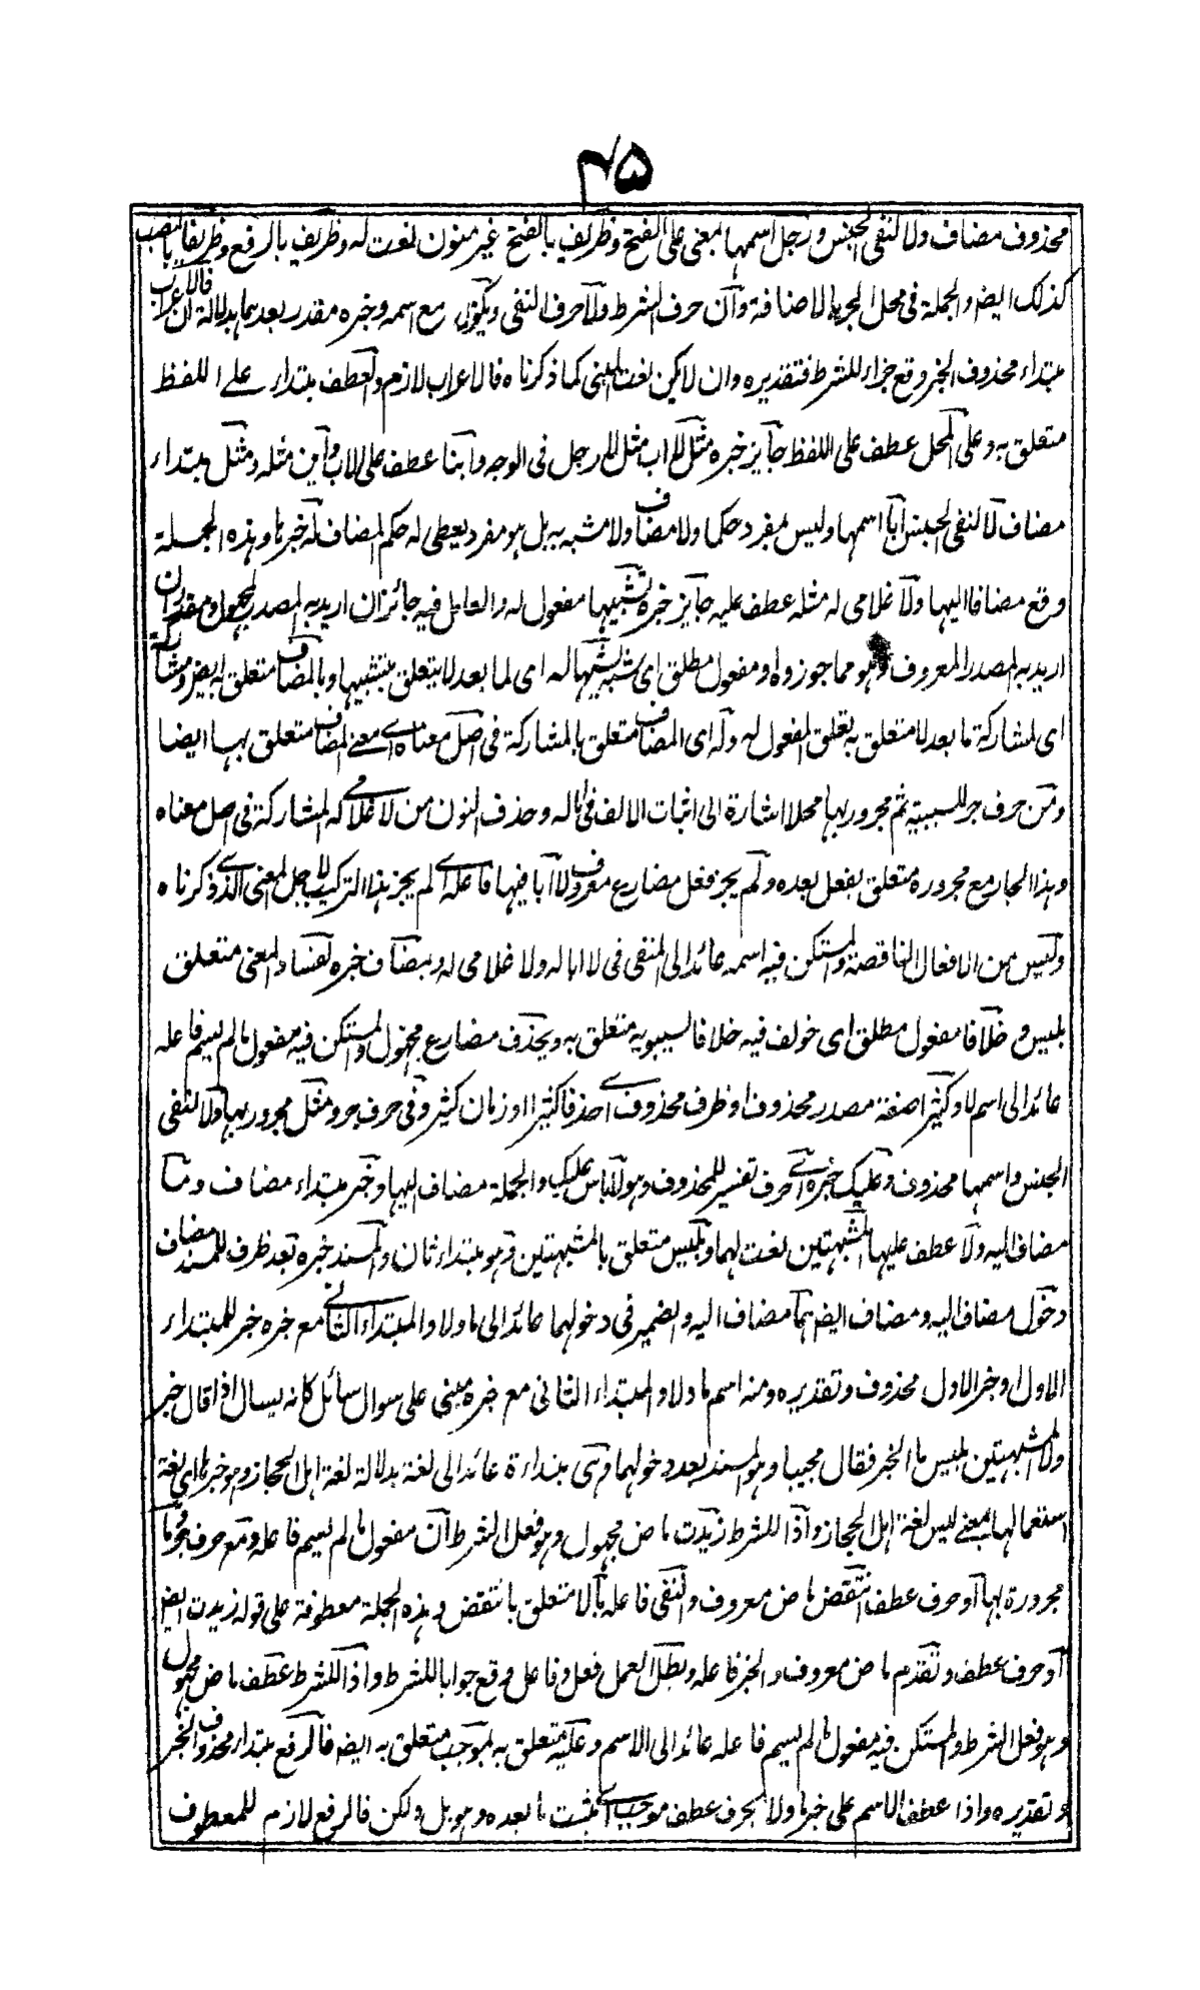 ٤٥
محذوف مضاف ولا لنفى الجنس ورجل اسمها مبنى على الفتح وظريف بالفتح غير منون نعت له وظريف بالرفع وظريفا بالنصب
كذلك ايضا والجملة فى محل الجر بالاضافة وان حرف الشرط ولا حرف النفى ويكون مع اسمه وخبره مقدر بعدهما بدلالة ان فالاعراب
مبتداء محذوف الخبر وقع جزاء للشرط فتقديره وان لا يكن نعت المبنى كما ذكرناه فالاعراب لازم والعطف مبتداء على اللفظ
متعلق به وعلى المحل عطف على اللفظ جايز خبره مثل لا اب مثل لا رجل فى الوجه وابنا عطف على لا اب وابن مثله ومثل مبتداء
مضاف لا لنفى الجنس ابا اسمها وليس بمفرد حكما ولا مضاف ولا مشبه به بل هو مفرد يعطى له حكم المضاف له خبرها وهذه الجملة
وقع مضافا اليها ولا غلامى له مثله عطف عليه جايز خبره تشبيها مفعول له والعامل فيه جائز ان اريد به المصدر المجهول ومقدر ان
اريد به المصدر المعروف وهو مما جوزوه او مفعول مطلق اى شبه تشبيها له اى لما بعد لا يتعلق بتشبيها وبالمضاف متعلق به ايضا ولمشاركة
اى لمشاركة ما بعد لا متعلق به تعلق المفعول له وله اى المضاف متعلق بالمشاركة فى اصل معناه اى معنى المضاف متعلق بها ايضا
ومن حرف جر للسببية ثم مجرور بها محلا اشارة الى اثبات الالف فى ابا له وحذف النون من لا غلامى له المشاركة فى اصل معناه
وهذا الجار مع مجروره متعلق بفعل بعده ولم يجز فعل مضارع معروف ولا ابا فيها فاعله اى لم يجز هذا التركيب لاجل المعنى الذى ذكرناه
وليس من الافعال الناقصة والمستكن فيه اسمه عائد الى المنفى فى لا ابا له ولا غلامى له وبمضاف خبره لفساد المعنى متعلق
بليس وخلافا مفعول مطلق اى خولف فيه خلافا لسيبويه متعلق به ويحذف مضارع مجهول والمستكن فيه مفعول ما لم يسم فاعله
عائد الى اسم لا وكثيرا صفة مصدر محذوف او ظرف محذوف اى حذفا كثيرا او زمان كثير وفى حرف جر ومثل مجرور بها ولا لنفى
الجنس واسمها محذوف وعليك خبره اى حرف تفسير للمحذوف وهو لا باس عليك والجملة مضاف اليها وخبر مبتداء مضاف وما
مضاف اليه ولا عطف عليها المشبهتين نعت لهما وبليس متعلق بالمشبهتين وهو مبتداء ثان والمسند خبره بعد ظرف للمسند مضاف
دخول مضاف اليه ومضاف ايضا هما مضاف اليه والضمير فى دخولهما عائد الى ما ولا والمبتداء الثانى مع خبره خبر للمبتداء
الاول او خبر الاول محذوف وتقديره ومنه اسم ما ولا والمبتداء الثانى مع خبره مبنى على سوال سائل كانه يسال اذا قال خبر
ولا المشبهتين بليس ما الخبر فقال مجيبا وهو المسند بعد دخولهما وهى مبتداءة عائد الى لغة بدلالة لغة اهل الحجاز وهو خبرها اى لغة
استعمالهما بمعنى ليس لغة اهل الحجاز واذا للشرط زيدت ماض مجهول وهو فعل الشرط ان مفعول ما لم يسم فاعله ومع حرف جر وما
مجرورة بها او حرف عطف انتقض ماض معروف والنفى فاعله بالا متعلق بانتقض وهذه الجملة معطوفة على قوله زيدت ايضا
او حرف عطف وتقدم ماض معروف والخبر فاعله وبطل العمل فعل وفاعل وقع جوابا للشرط واذا للشرط عطف ماض مجهول
وهو فعل الشرط والمستكن فيه مفعول ما لم يسم فاعله عائد الى الاسم وعليه متعلق به بموجب متعلق به ايضا فالرفع مبتداء محذوف الخبر
وتقديره واذا عطف الاسم على خبر ما ولا بحرف عطف موجب اى مثبت ما بعده وهو بل ولكن فالرفع لازم للمعطوف